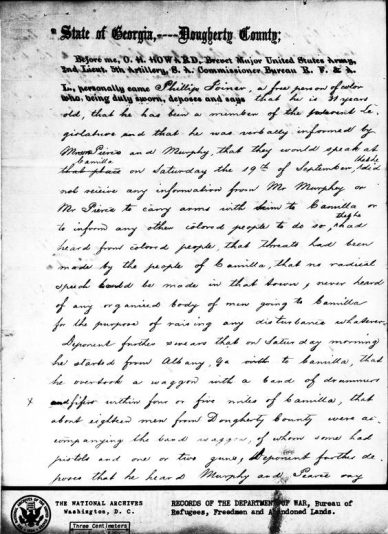 State of Georgia,----Dougherty County;
Before me, O. H. HOWARD, Brevet Major United States Army,
2nd Lieut. 5th Artillery, S. A. Commissioner Bureau R. F. & A.
L., personally came Phillip Joiner, a free person of color
who, being duly sworn, deposes and says that he is years
old, that he has been a member of the present Le-
gislature and that he was verbally informed by
Pierce and Murphy, that they would speak at
Camilla
that place on Saturday the 19th of September, that he did
not receive any information from Mr Murphy or
Mr Pierce to carry arms with him to Camilla or
to inform any other colored people to do so, had
heard from colored people, that threats had been
made by the people of Camilla, that no radical
speech should be made in that town, never heard
of any organised body of men going to Camilla
for the purpose of raising any disturbance whatever.
Deponent further swears that on Saturday morning
he started from Albany, Ga to Camilla, that
he overtook a waggon with a band of drummers
x and fifes within four or five miles of Camilla, that
about eighteen men from Dougherty County were ac-
companying the band waggon, of whom some had
pistols and one or two guns, Deponent further de-
poses that he heard Murphy and Pearce say
THE NATIONAL ARCHIVES
Washington, D. C.
RECORDS OF THE DEPARTMENT OF WAR, Bureau of
Refugees, Freedmen and Abandoned Lands.
Three Centimeters